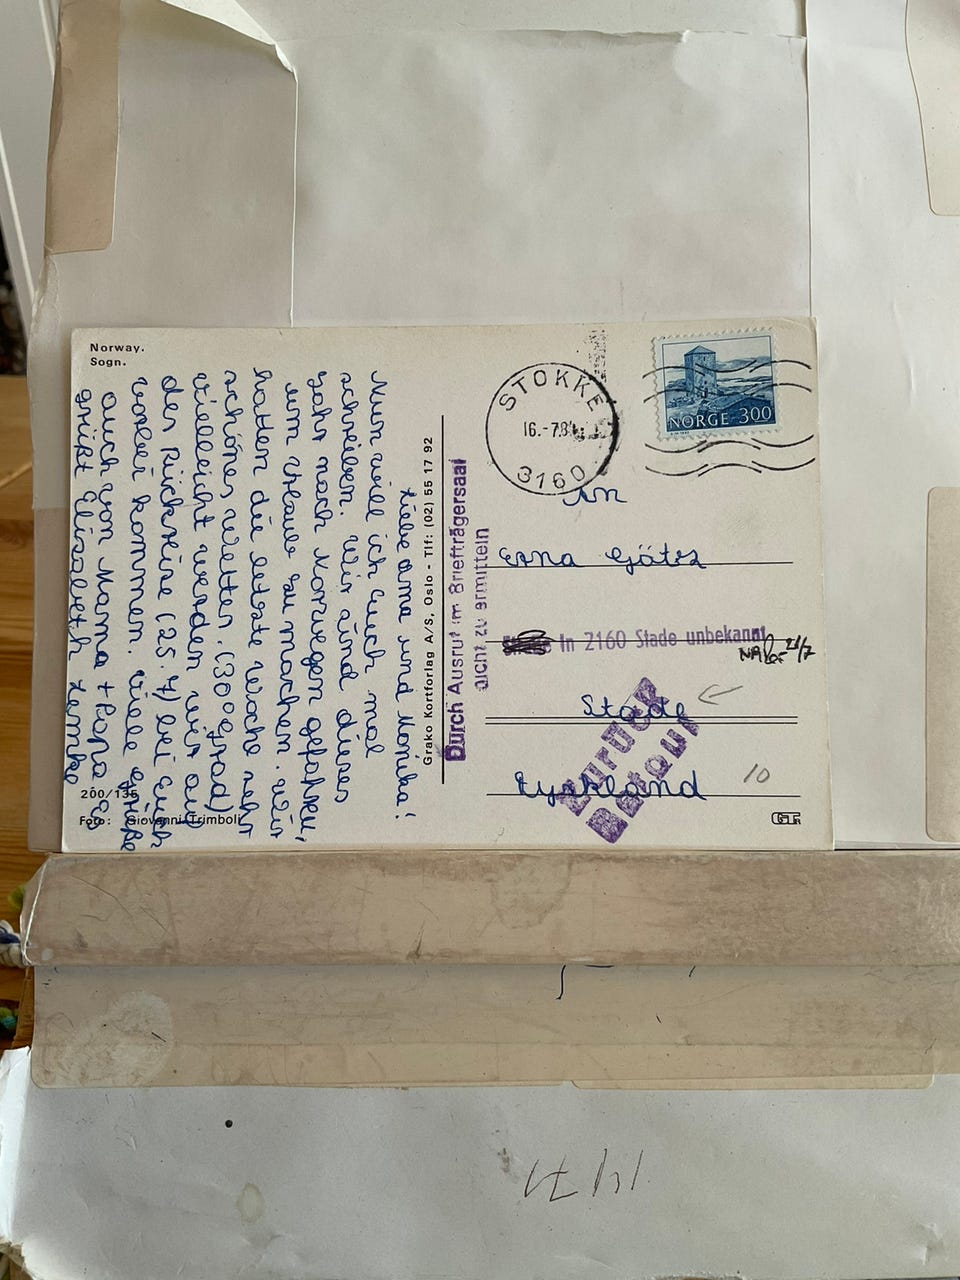 Norway.
Sogn.
Liebe Oma und Monika!
Nun will ich Euch mal
schreiben. Wir sind dieses
Jahr nach Norwegen gefahren,
um Urlaub zu machen. Wir
hatten die letzte Woche sehr
schönes Wetter. (30° grad)
Vielleicht werden wir auf
der Rückreise (25.7) bei Euch
vorbei kommen. Viele Grüße
auch von Mama + Papa es
grüßt Elisabeth Lemke
200/135
Foto: Giovanni Trimboli
Grako Kortforlag A/S, Oslo - Tlf: (02) 55 17 92
Durch Ausruf im Briefträgersaal
nicht zu ermitteln
STOKKE
16.-7.8
3160
NORGE 300
An
Erna Götz
in 2160 Stade unbekannt
21/7
Stade
Zurück
Retour
Tyskland
10